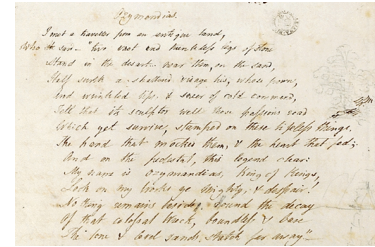 Ozymandias
I met a traveller from an antique land,
Who said "Two vast and trunkless legs of stone
Stand in the desert near them, on the sand,
Half sunk a shattered visage lies, whose frown,
And wrinkled lips, & sneer of cold command,
Tell that its sculptor well those passions read
Which yet survive, stamped on these lifeless things,
The hand that mocked them, & the heart that fed;
And on the pedestal, this legend clear:
My name is Ozymandias, King of Kings,
Look on my works ye Mighty, & despair!
No thing remains beside. Round the decay
Of that colossal Wreck, boundless & bare
The lone & level sands stretch far away."